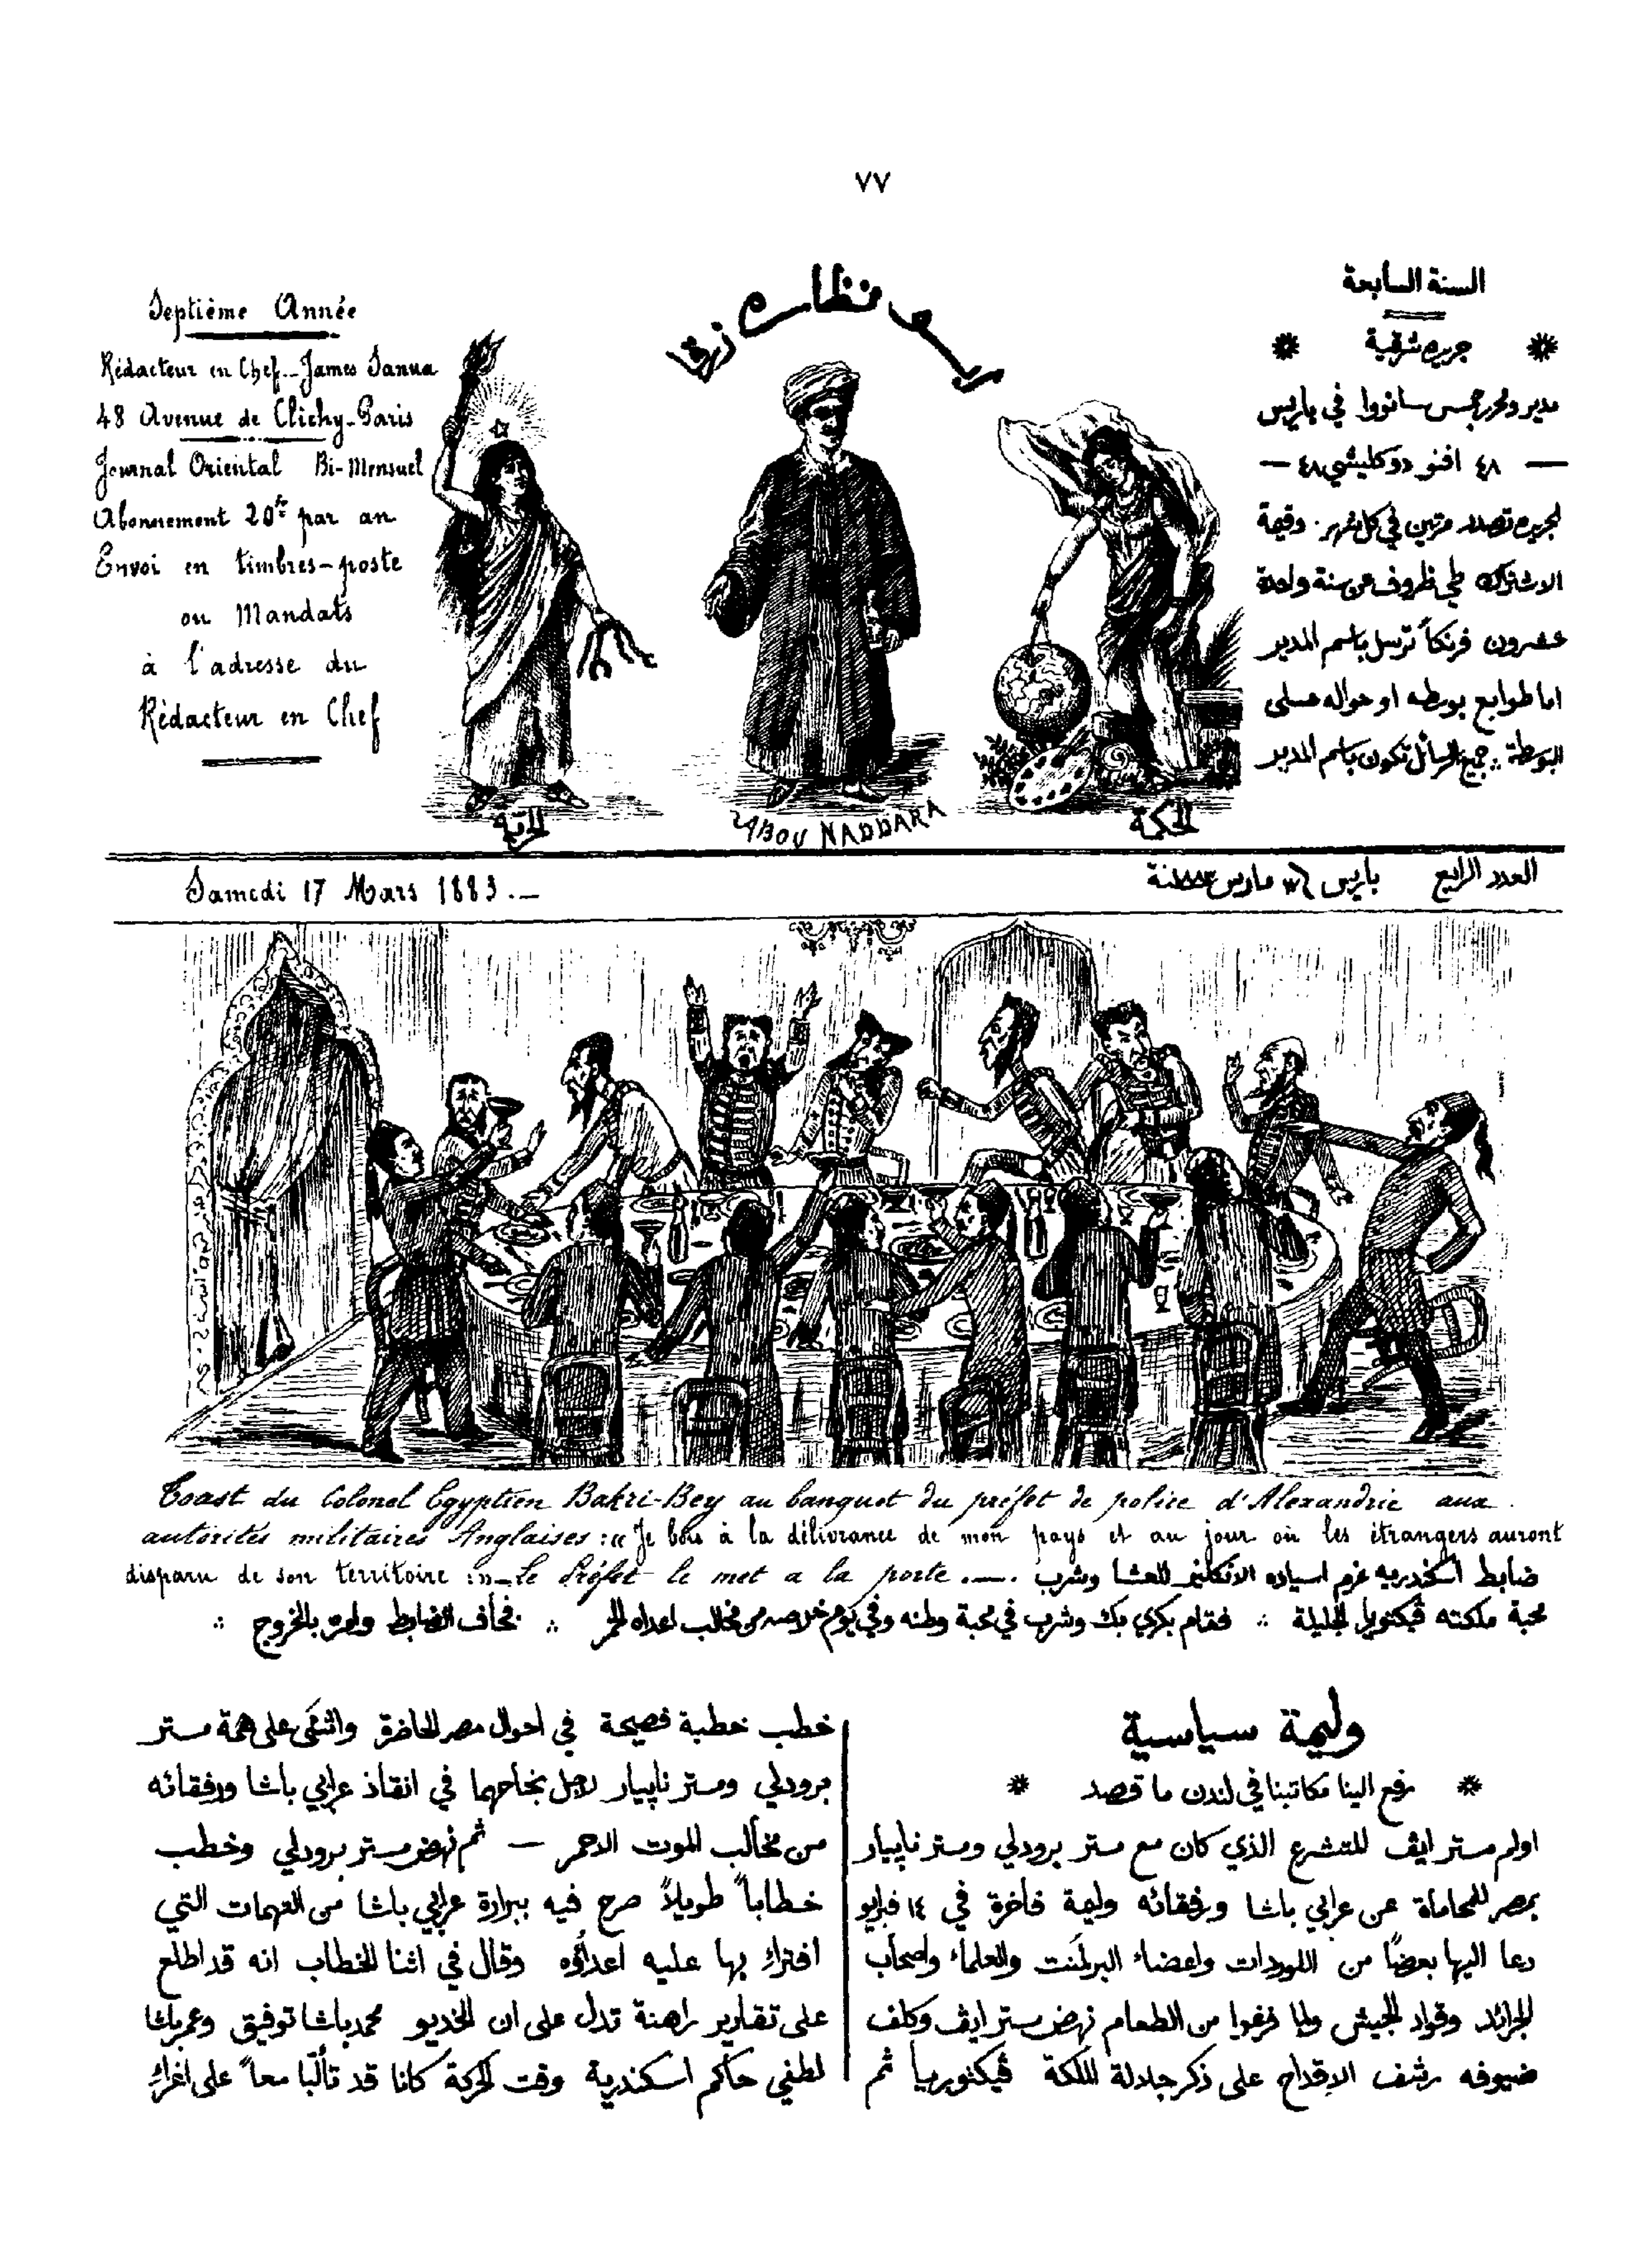 ٧٧
Septième Année
Rédacteur en Chef_James Sanua
48 Avenue de Clichy_Paris
Journal Oriental Bi-Mensuel
Abonnement 20fr par an
Envoi en timbres-poste
ou Mandats
à l'adresse du
Rédacteur en Chef
نظاره زرقا
السنة السابعة
جريده شرقية
مدير ومحرر جمس سانووا في باريس
٤٨ افنو دوكليشي ٤٨
الجريده تصدر مرتين في كل شهر. وقيمة
الاشتراك طي ظروف عن سنة واحدة
عشرون فرنكاً ترسل باسم المدير
اما طوابع بوسطه او حواله على
البوسطة ∴ جميع الرسائل تكون باسم المدير
الحرية
ABOU NADDARA
الحكمة
Samedi 17 Mars 1883._
العدد الرابع باريس ١٧ مارس سنة ١٨٨٣
Toast du Colonel Egyptien Bakri-Bey au banquet du préfet de police d'Alexandrie aux
autorités militaires Anglaises: «Je bois à la délivrance de mon pays et au jour où les étrangers auront
disparu de son territoire!»_Le Préfet le met a la porte._.
ضابط اسكندريه عزم اسياده الانكليز للعشا وشرب
محبة ملكته ڤيكتوريا الجليلة ∴ فقام بكري بك وشرب في محبة وطنه وفي يوم خلاصه من مخالب اعداه الحمر ∴ فخاف الضابط وامره بالخروج ∴
وليمة سياسية
رفع الينا مكاتبنا في لندن ما قصد
اولم مستر ايڤ المتشرع الذي كان مع مستر برودلي ومستر ناپيار
بمصر للمحاماة عن عرابي باشا ورفقائه وليمة فاخرة في ١٤ فبرايو
دعا اليها بعضاً من اللوردات واعضاء البرلمنت والعلماء واصحاب
الجرائد وقواد الجيش ولما فرغوا من الطعام نهض مستر ايڤ وكلف
ضيوفه رشف الاقداح على ذكر جلالة الملكة ڤيكتوريا ثم
خطب خطبة فصيحة في احوال مصر الحاضرة واثنى على همة مستر
برودلي ومستر ناپيار لاجل نجاحهما في انقاذ عرابي باشا ورفقائه
من مخالب الموت الاحمر — ثم نهض مستر برودلي وخطب
خطاباً طويلاً صرح فيه ببرارة عرابي باشا من التهمات التي
افتراء بها عليه اعداؤه وقال في اثنا الخطاب انه قد اطلع
على تقارير راهنة تدل على ان الخديو محمد باشا توفيق وعمر بك
لطفي حاكم اسكندرية وقت الحركة كانا قد تألّبا معاً على اغراء